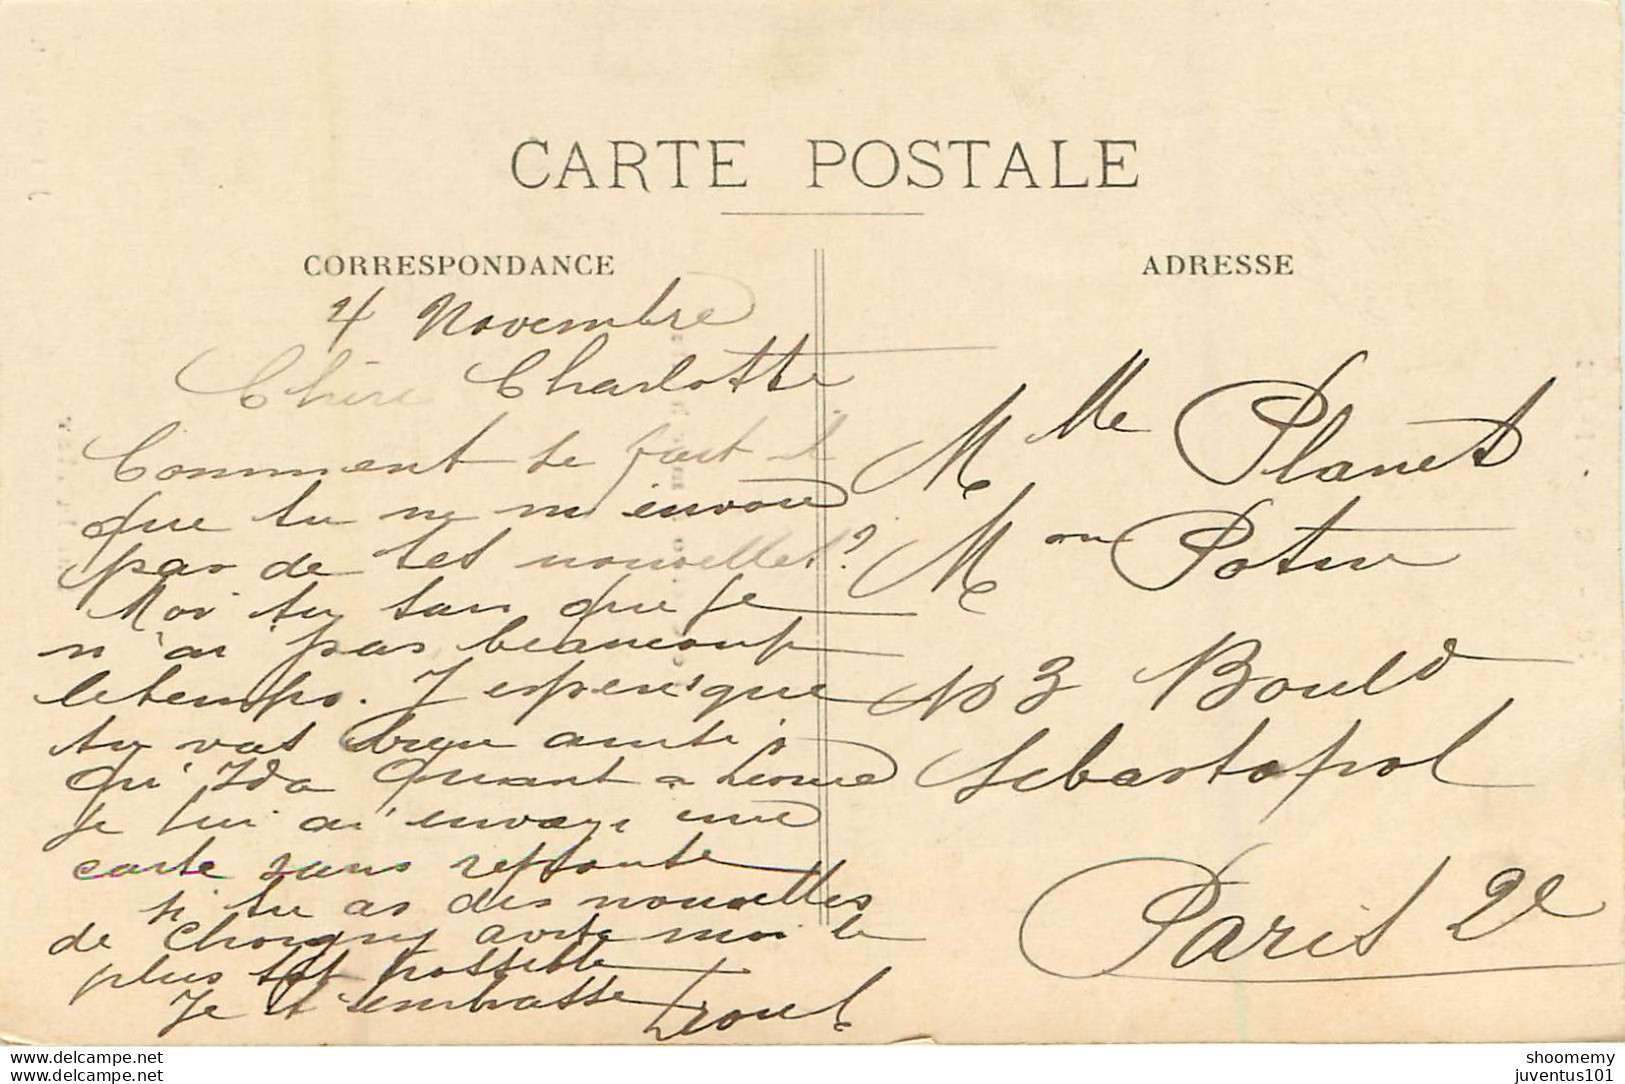 CARTE POSTALE
CORRESPONDANCE
4 Novembre
Chère Charlotte
Comment se fait il
que tu ne m envoie
pas de tes nouvelles?
Moi tu sais que je
n'ai pas beaucoup
letemps. J esper'que
tu vas bien ainsi
qu' Ida Quant a
je lui ai envoye une
carte sans reponse
si tu as des nouvelles
de Choigny moi le
plus tot possible
Je t'embrasse
ADRESSE
Mlle Planet
Mon Potin
No 3 Bould
Sebastopol
Paris 2e
www.delcampe.net
www.delcampe.net
shoomemy
juventus101